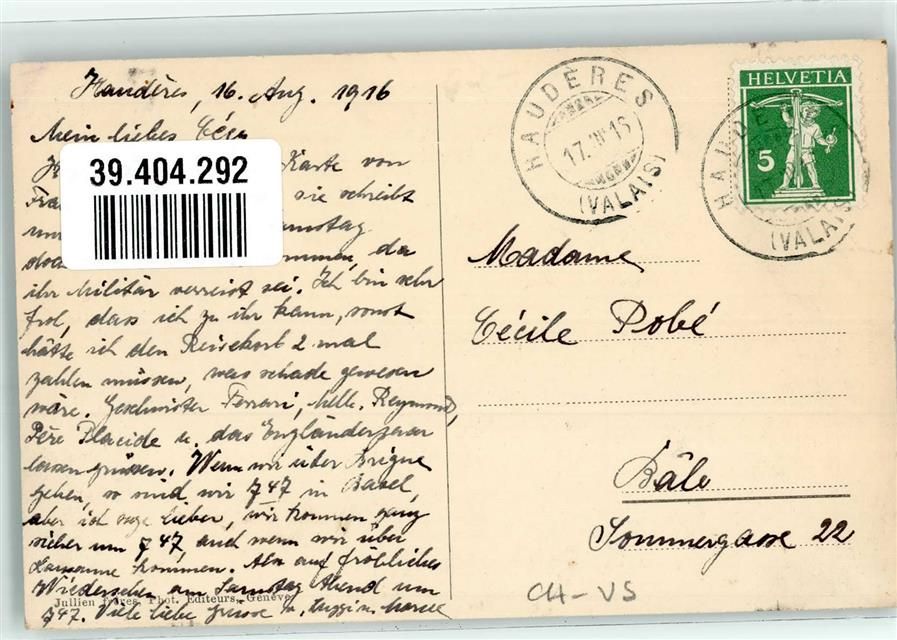 Haudères, 16. Aug. 1916
Mein liebes
39.404.292
Karte von
sie schreibt
Samstag
da
ihr Militär verreist sei. Ich bin sehr
frol, dass ich zu ihr kann, sonst
hätte ich den Reisekorb 2 mal
zahlen müssen, was schade gewesen
wäre. Geschwister Ferrari, Melle. Reymond,
Père Placide u. das Engländerpaar
lassen grüssen. Wenn wir über Brigue
gehen, so sind wir 747 in Basel,
aber ich sage lieber, wir kommen ganz
sicher um 747, auch wenn wir über
Lausanne kommen. Also auf fröhliches
Wiedersehen am Samstag Abend um
747. Viele liebe Grüsse v.
Jullien frères, Phot. Editeurs, Genève
HAUDÈRES
17. VIII 16
(VALAIS)
HELVETIA
5
HAUDÈRES
(VALAIS)
Madame
Cécile Pobé
Bâle
Sommergasse 22
CH-VS